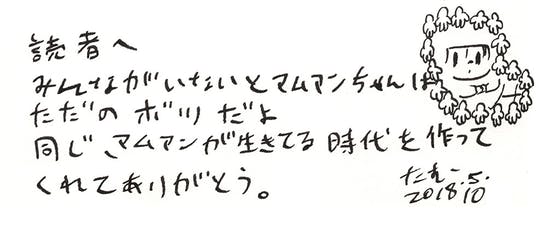 読者へ
みんながいないとマムアンちゃんは
ただの ボツ だよ
同じ、マムアンが生きてる 時代を作って
くれてありがとう。
2018.10